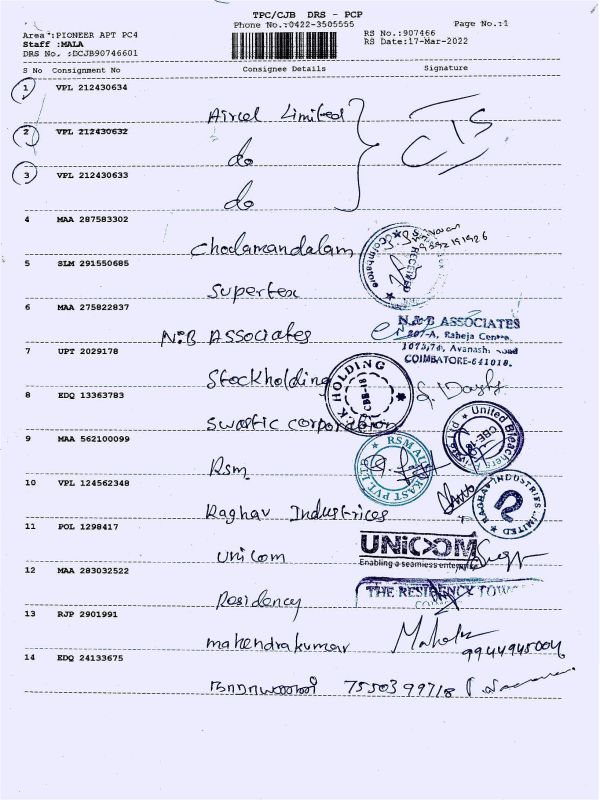 TPC/CJB DRS - PCP
Phone No.:0422-3505555
Page No.:1
Area :PIONEER APT PC4
RS No.:907466
Staff :MALA
RS Date:17-Mar-2022
DRS No. :DCJB90746601
S No Consignment No Consignee Details Signature
1 VPL 212430634
Aircel Limited
CTS
2 VPL 212430632
do
3 VPL 212430633
do
4 MAA 287583302
Cholamandalam
RECEIVED
5 SLM 291550685
Supertex
6 MAA 275822837
N&B Associates
N&B ASSOCIATES
207-A, Raheja Centre,
1073,74, Avanashi Road
COIMBATORE-641018.
7 UPT 2029178
Stockholding
K HOLDING
8 EDQ 13363783
Swastic corporation
United Bleachers
9 MAA 562100099
Rsm
RSM AU KAST PVT LTD
10 VPL 124562348
Raghav Industrices
RAGHAV INDUSTRIES LIMITED
11 POL 1298417
Unicom
UNICOM
Enabling a seamless enterprise
12 MAA 283032522
Residency
THE RESIDENCY TOW
13 RJP 2901991
mahendrakumar
9944945004
14 EDQ 24133675
நாராயணன் 7550399718